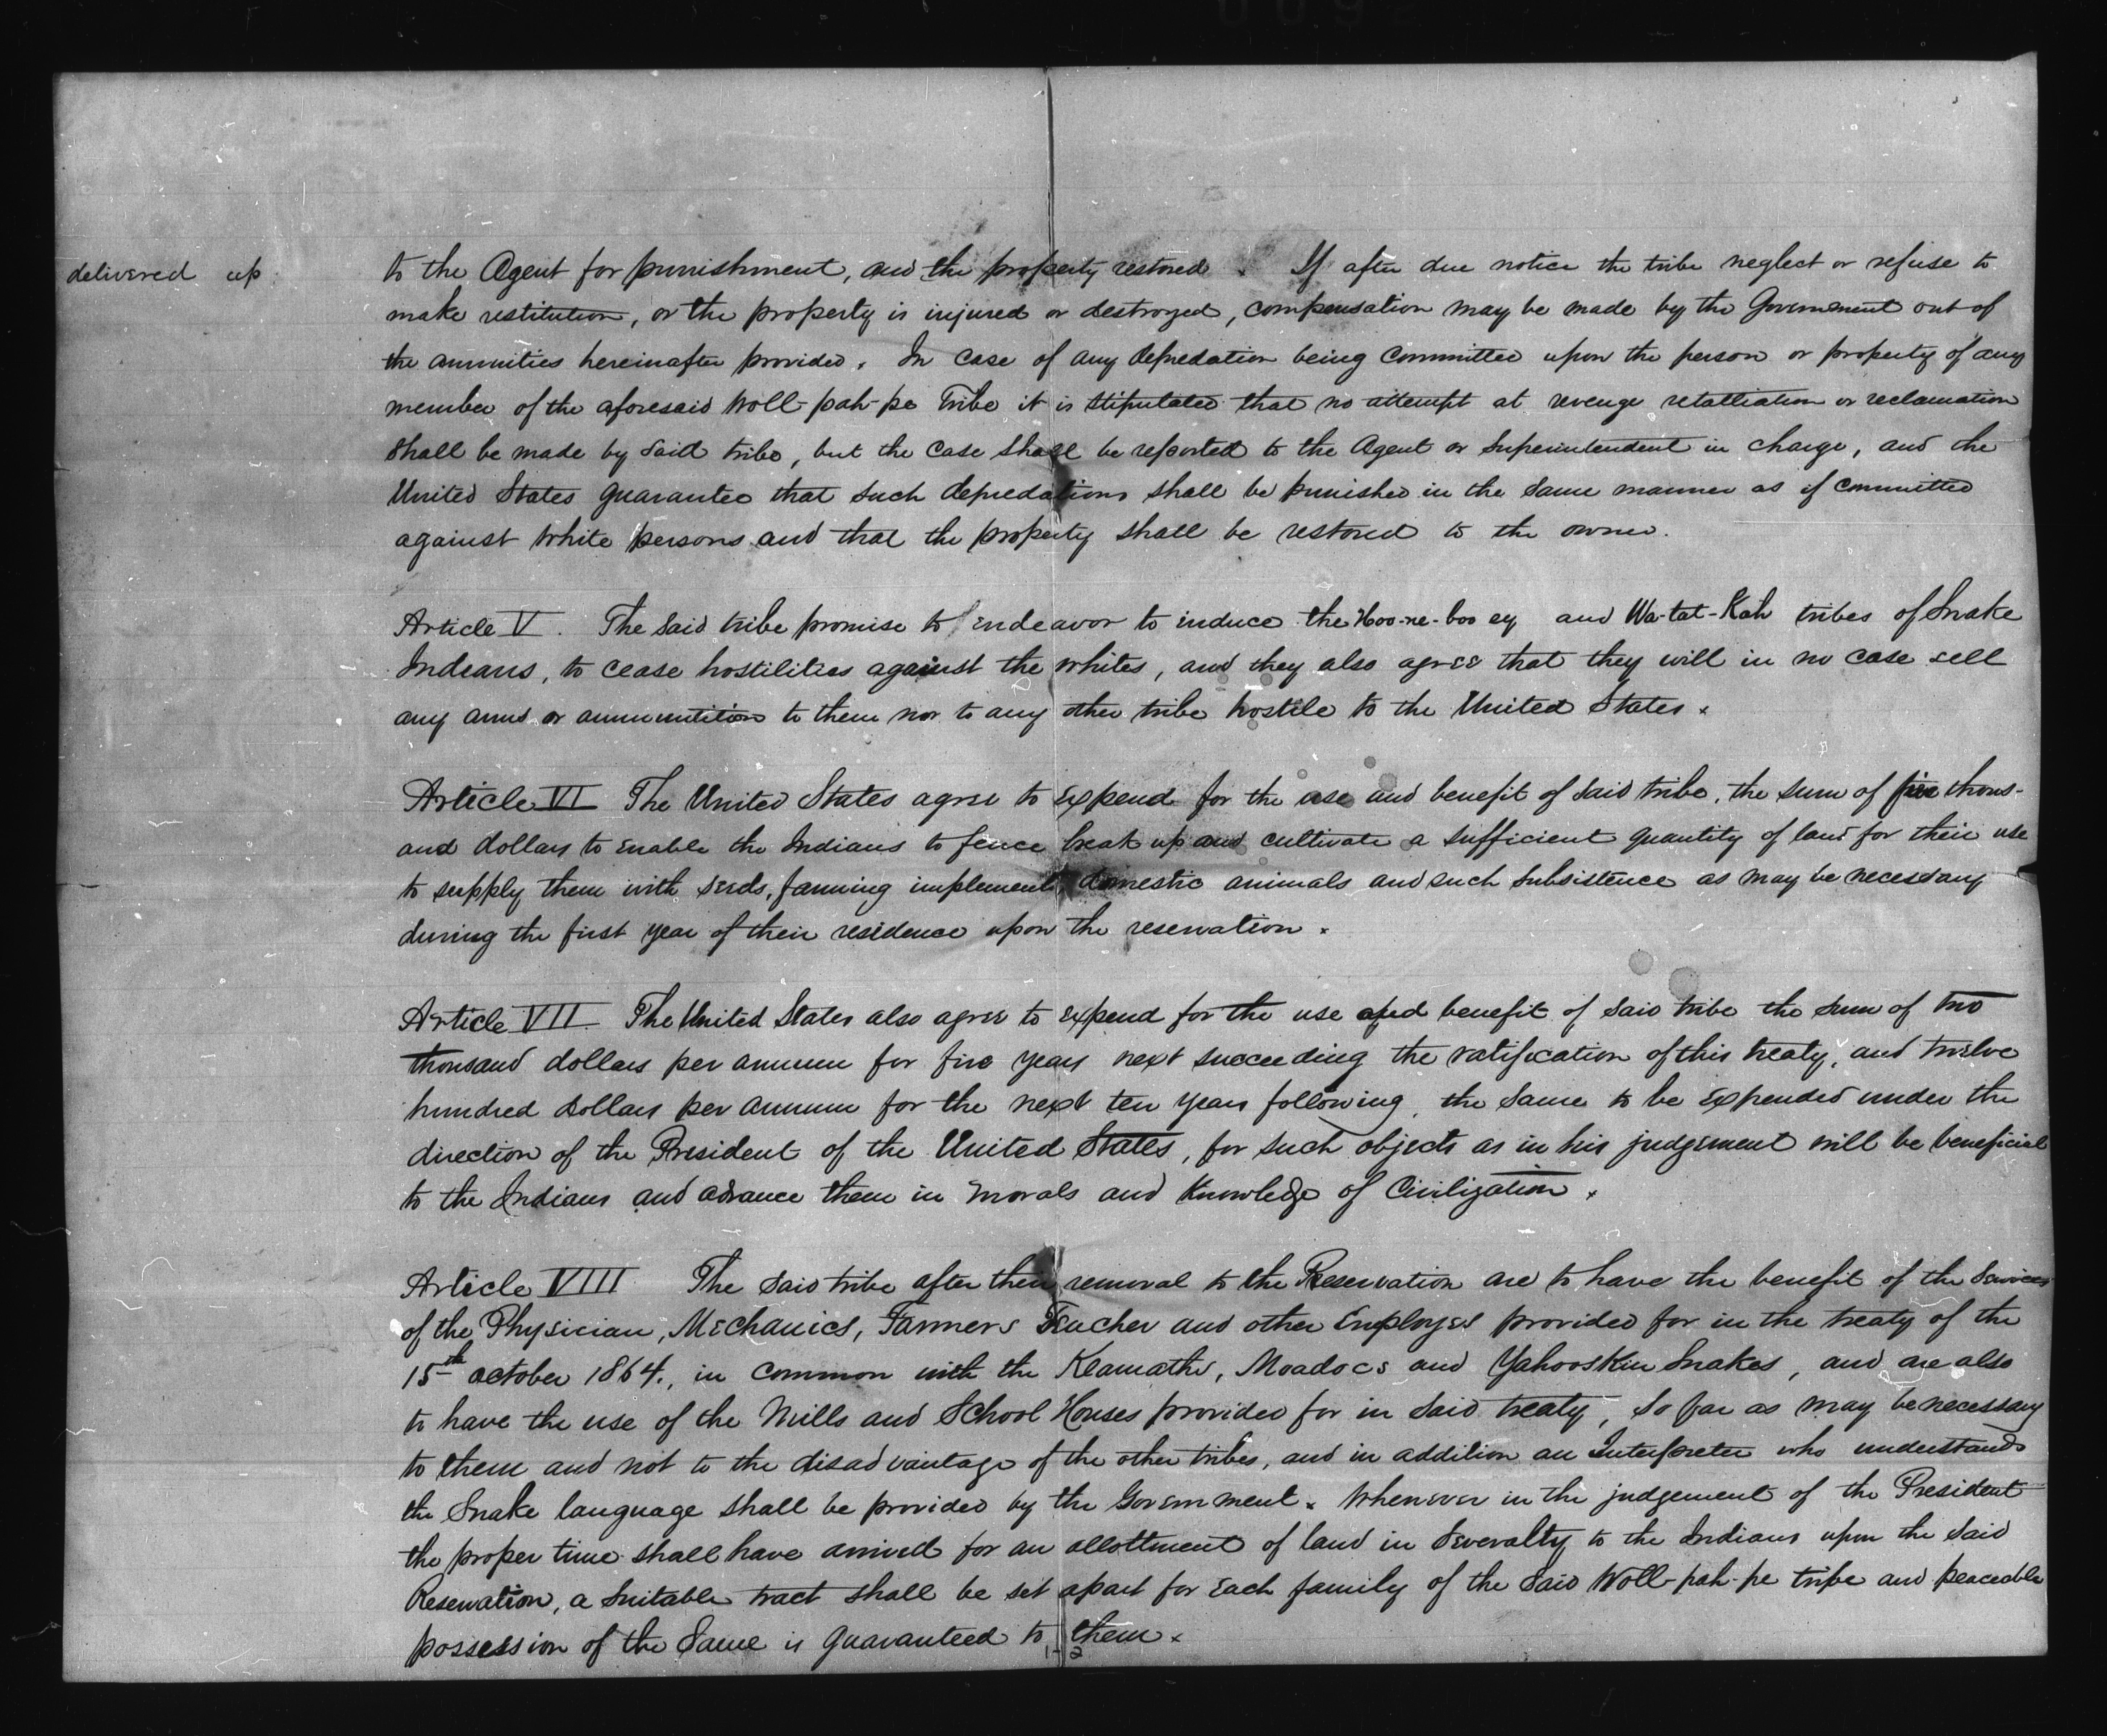 delivered up to the Agent for punishment, and the property restored. If after due notice the tribe neglect or refuse to
make restitution, or the property is injured or destroyed, compensation may be made by the Government out of
the annuities hereinafter provided. In case of any depredation being committed upon the person or property of any
member of the aforesaid Woll-pah-pe Tribe it is stipulated that no attempt at revenge retalliation or reclamation
shall be made by said tribe, but the case shall be reported to the Agent or Superintendent in charge, and the
United States guarantee that such depredations shall be punished in the same manner as if committed
against white persons and that the property shall be restored to the owner.
Article V. The said tribe promise to endeavor to induce the Hoo-ne-boo ey and Wa-tat-Kah tribes of Snake
Indians, to cease hostilities against the whites, and they also agree that they will in no case sell
any arms or ammunition to them nor to any other tribe hostile to the United States.
Article VI The United States agree to expend for the use and benefit of said tribe, the sum of five thous-
and dollars to enable the Indians to fence break up and cultivate a sufficient quantity of land for their use
to supply them with seeds, farming implements, domestic animals and such subsistence as may be necessary
during the first year of their residence upon the reservation.
Article VII. The United States also agree to expend for the use and benefit of said tribe the sum of two
thousand dollars per annum for five years next succeeding the ratification of this treaty, and twelve
hundred dollars per annum for the next ten years following, the same to be expended under the
direction of the President of the United States, for such objects as in his judgement will be beneficial
to the Indians and advance them in morals and knowledge of Civilization.
Article VIII The said tribe after their removal to the Reservation are to have the benefit of the services
of the Physician, Mechanics, Farmers Teacher and other Employes provided for in the treaty of the
15th october 1864., in common with the Klamaths, Moadocs and Yahooskin Snakes, and are also
to have the use of the Mills and School Houses provided for in said treaty, so far as may be necessary
to them and not to the disadvantage of the other tribes, and in addition an Interpreter who understands
the Snake language shall be provided by the Government. Whenever in the judgement of the President
the proper time shall have arrived for an allottment of land in severalty to the Indians upon the said
Reservation, a suitable tract shall be set apart for each family of the said Woll-pah-pe tribe and peaceable
possession of the same is guaranteed to them.
1-2